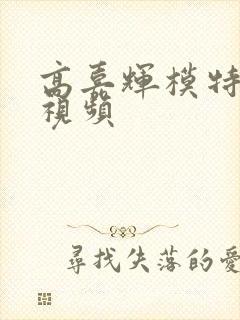 高嘉輝模特
視頻
尋找失落的愛